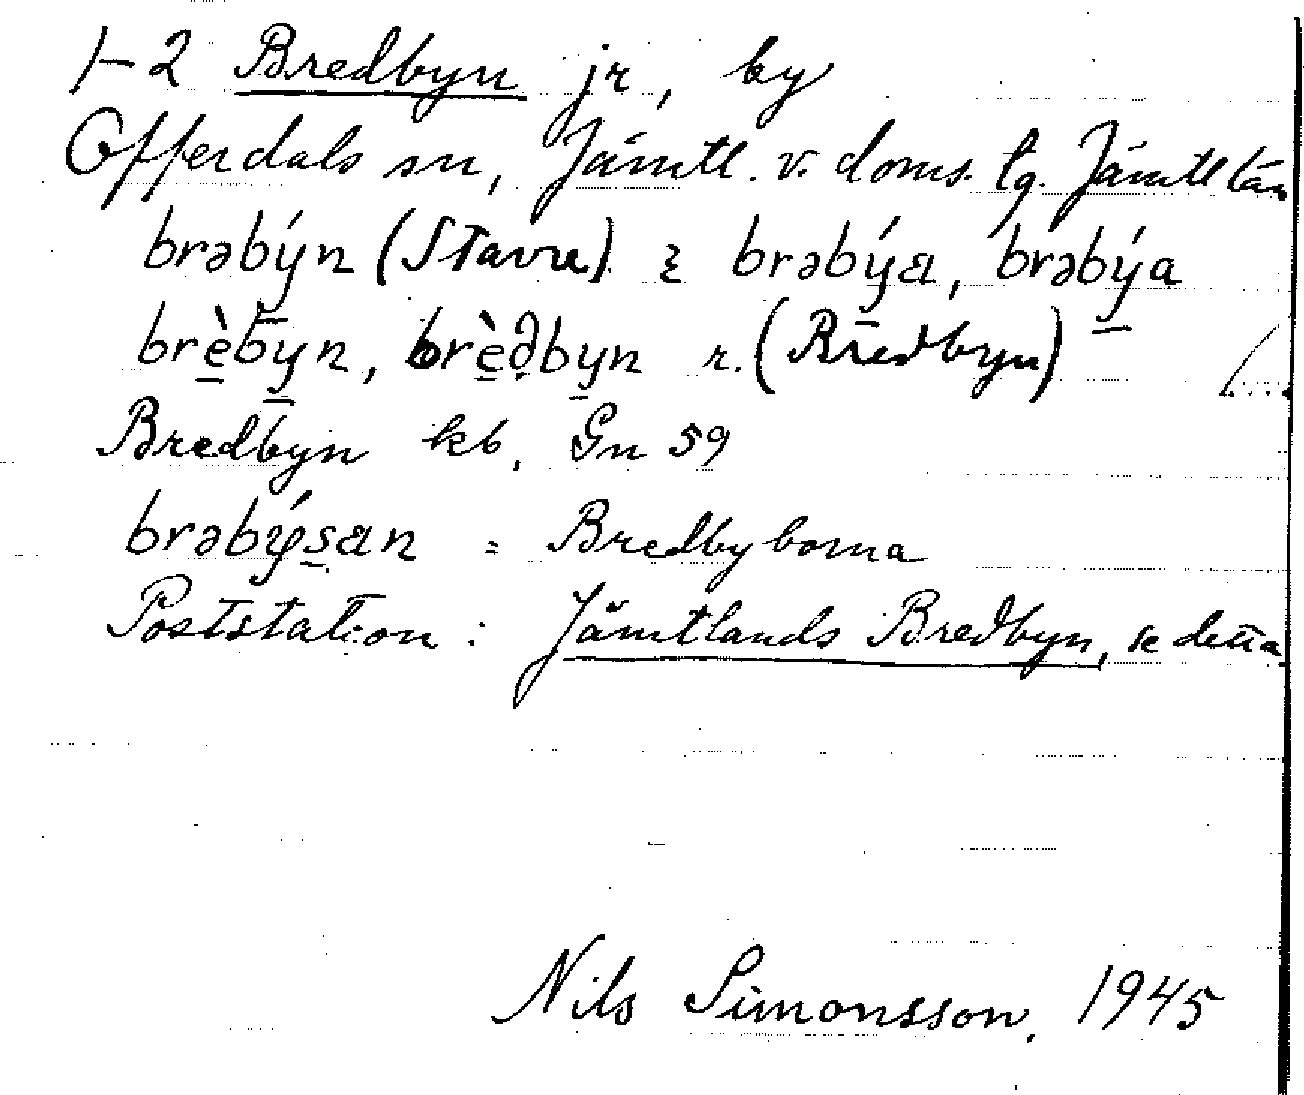 1-2 Bredbyn jr, by
Offerdals sn, Jämtl. v. doms. lg. Jämtl län
brəbýn (Stavre) ξ brəbýa, brəbýa
brèbyn, brèðbyn r. (Bredbyn)
Bredbyn kb, Gn 59
brəbýsan = Bredbyborna
Poststation: Jämtlands Bredbyn, se detta
Nils Simonsson, 1945